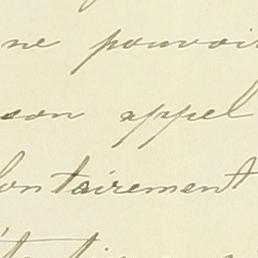 ne pouvoir
son appel
lontairement